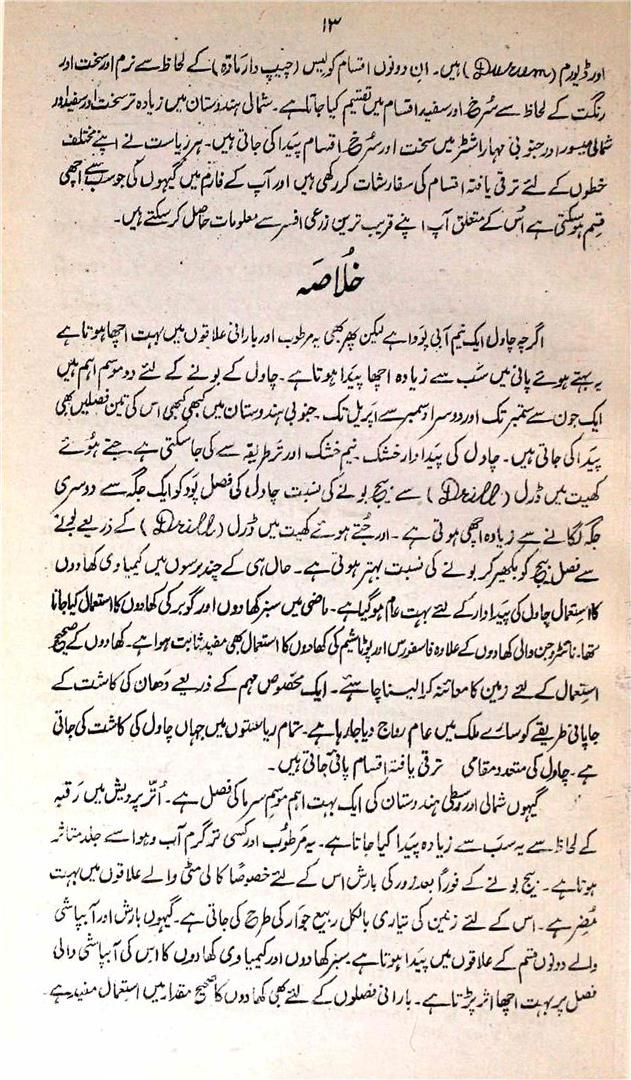 ۱۳
اور ڈیورم (Durum) ہیں۔ ان دونوں اقسام کو لیس (چیپ دار مادّہ) کے لحاظ سے نرم اور سخت اور
رنگت کے لحاظ سے سُرخ اور سفید اقسام میں تقسیم کیا جاتا ہے۔ شمالی ہندوستان میں زیادہ تر سخت اور سفید اور
شمالی میسور اور جنوبی مہاراشٹر میں سخت اور سُرخ اقسام پیدا کی جاتی ہیں۔ ہر ریاست نے اپنے مختلف
خطوں کے لئے ترقی یافتہ اقسام کی سفارشات کر رکھی ہیں اور آپ کے فارم میں گیہوں کی جو سب سے اچھی
قسم ہو سکتی ہے اُس کے متعلق آپ اپنے قریب ترین زرعی افسر سے معلومات حاصل کر سکتے ہیں۔
خُلاصَہ
اگرچہ چاول ایک نیم آبی پَودا ہے لیکن پھر بھی یہ مرطوب اور بارانی علاقوں میں بہت اچھا ہوتا ہے
یہ بہتے ہوئے پانی میں سَب سے زیادہ اچھا پیدا ہوتا ہے۔ چاول کے بونے کے لئے دو موسم اہم ہیں
ایک جون سے ستمبر تک اور دوسرا دسمبر سے اپریل تک۔ جنوبی ہندوستان میں کبھی کبھی اس کی تین فصلیں بھی
پیدا کی جاتی ہیں۔ چاول کی پیداوار خشک، نیم خشک اور تر طریقہ سے کی جا سکتی ہے۔ جتے ہُوئے
کھیت میں ڈرل (Drill) سے بیج بونے کی نسبت چاول کی فصل پَود کو ایک جگہ سے دوسری
جگہ لگانے سے زیادہ اچھی ہوتی ہے۔ اور جُتے ہوئے کھیت میں ڈرل (Drill) کے ذریعے بونے
سے فصل بیج کو بکھیر کر بونے کی نسبت بہتر ہوتی ہے۔ حال ہی کے چند برسوں میں کیمیاوی کھادوں
کا استعمال چاول کی پیداوار کے لئے بہت عام ہو گیا ہے۔ ماضی میں سبز کھادوں اور گوبر کی کھادوں کا استعمال کیا جاتا
تھا۔ نائٹروجن والی کھادوں کے علاوہ فاسفورس اور پوٹاشیم کی کھادوں کا استعمال بھی مفید ثابت ہوا ہے۔ کھادوں کے صحیح
استعمال کے لئے زمین کا معائنہ کرا لینا چاہیئے۔ ایک مخصوص مہم کے ذریعے دَھان کی کاشت کے
جاپانی طریقے کو سارے ملک میں عام رواج دیا جا رہا ہے۔ تمام ریاستوں میں جہاں چاول کی کاشت کی جاتی
ہے۔ چاول کی متعدد مقامی ترقی یافتہ اقسام پائی جاتی ہیں۔
گیہوں شمالی اور وسطی ہندوستان کی ایک بہت اہم موسمِ سرما کی فصل ہے۔ اُتّر پردیش میں رقبہ
کے لحاظ سے یہ سب سے زیادہ پیدا کیا جاتا ہے۔ یہ مرطُوب اور کسی تر گرم آب و ہوا سے جلد متاثر
ہوتا ہے۔ بیج بونے کے فوراً بعد زور کی بارش اس کے لئے خصوصاً کالی مٹی والے علاقوں میں بہت
مُضِر ہے۔ اس کے لئے زمین کی تیاری بالکل ربیع جوار کی طرح کی جاتی ہے۔ گیہوں بارش اور آبپاشی
والے دونوں قسم کے علاقوں میں پَیدا ہوتا ہے۔ سبز کھادوں اور کیمیاوی کھادوں کا اس کی آبپاشی والی
فصل پر بہت اچھا اثر پڑتا ہے۔ بارانی فصلوں کے لئے بھی کھادوں کا صحیح مقدار میں استعمال مفید ہے۔